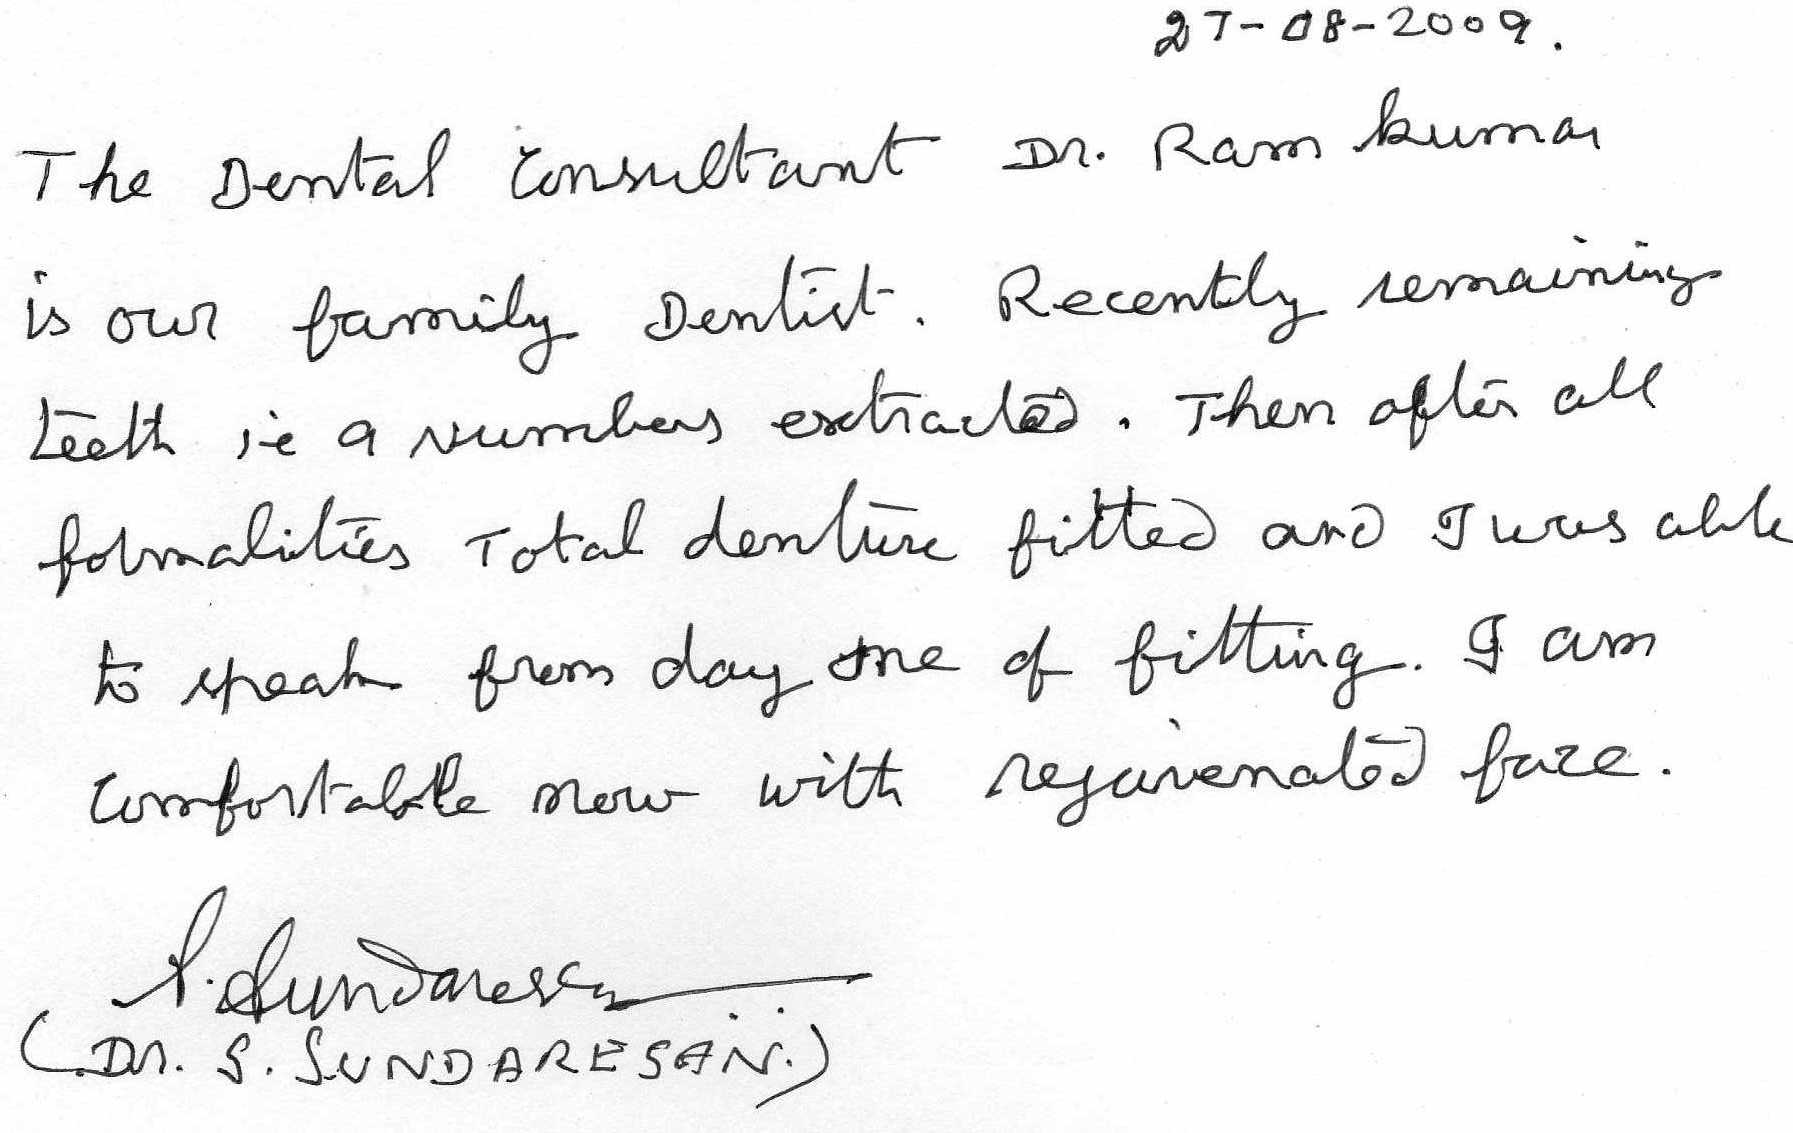 27-08-2009.
The Dental Consultant Dr. Ram kumar
is our family Dentist. Recently remaining
teeth i.e 9 Numbers extracted. Then after all
formalities Total denture fitted and I was able
to speak from day one of fitting. I am
comfortable now with rejuvenated face.
S. Sundaresan
(Dr. S. SUNDARESAN.)